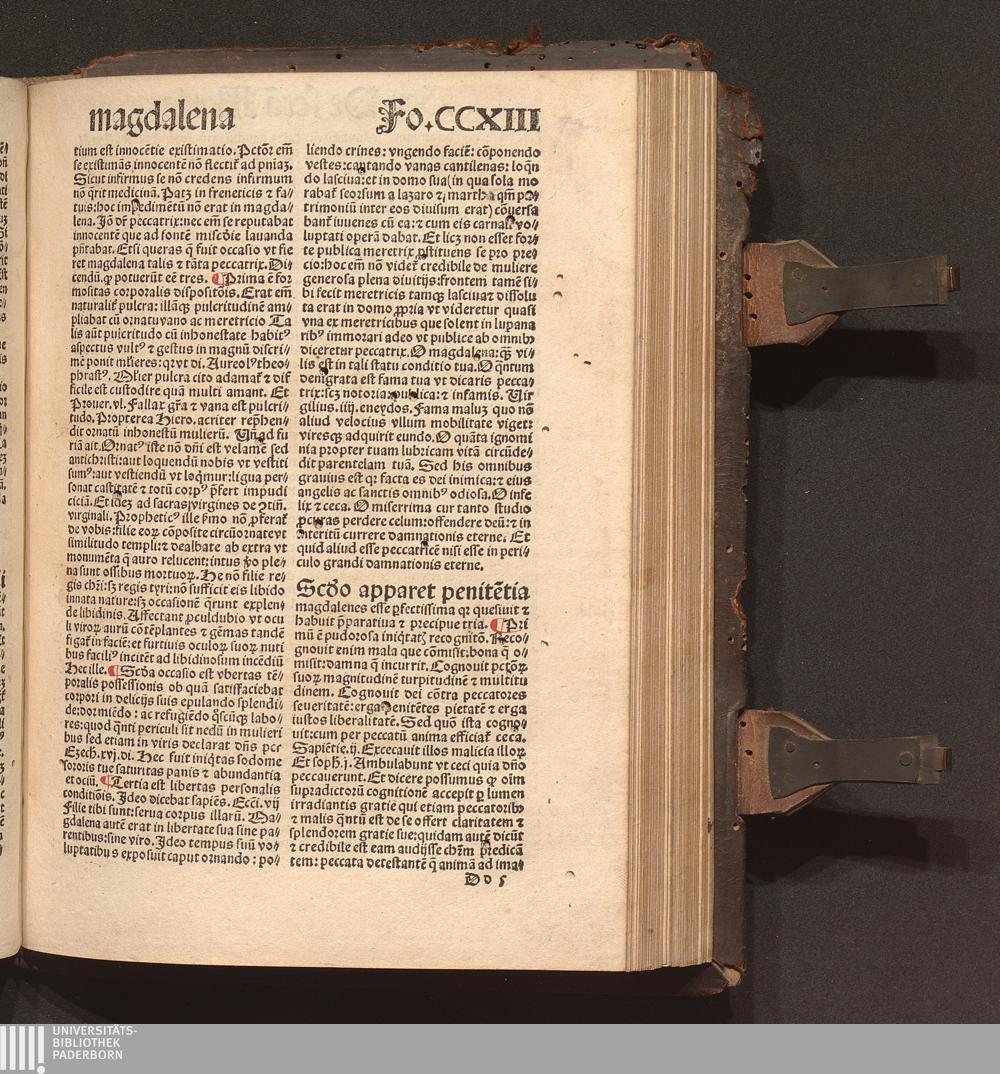 magdalena
Fo.CCXIII
tium est innocẽtie existimatio. Pctõr em̃
se existimãs innocentẽ nõ flectit᷑ ad pniaꝫ.
Sicut infirmus se nõ credens infirmum
nõ q̃rit medicinã. Patꝫ in freneticis ⁊ fa⸗
tuis: hoc impedimẽtũ nõ erat in magda⸗
lena. Jõ dr̃ peccatrix: nec em̃ se reputabat
innocentẽ que ad fontẽ miscðie lauanda
pñtabat᷑. Etsi queras q̃ fuit occasio vt fie
ret magdalena talis ⁊ tãta peccatrix. Di⸗
cendũ. ꝙ potuerũt eẽ tres. ¶Prima ẽ for
mositas corporalis dispositõis. Erat em̃
naturalit᷑ pulcra: illãqꝫ pulcritudinẽ am⸗
pliabat cũ ornatu vano ac meretricio Ta
lis aũt pulcritudo cũ inhonestate habitꝰ
aspectus vultꝰ ⁊ gestus in magnũ discri⸗
mẽ ponit ml̃ieres: qꝛ vt di. Aureolꝰ theo⸗
phrastꝰ. Ml̃ier pulcra cito adamat᷑ ⁊ dif
ficile est custodire quã multi amant. Et
Prouer. vl. Fallax gr̃a ⁊ vana est pulcri⸗
tudo. Propterea Hiero. acriter rep̃hen⸗
dit ornatũ inhonestũ mulierũ. Vñ ad fu
riã ait. Ornatꝰ iste nõ dñi est velamẽ sed
antichristi: aut loquendũ nobis vt vestiti
sumꝰ: aut vestiendũ vt loq̃mur: ligua per⸗
sonat castitatẽ ⁊ totũ corpꝰ p̃fert impudi
ciciã. Et ideꝫ ad sacras virgines de ꝯtiñ.
virginali. Propheticꝰ ille ẜmo nõ ꝓferat᷑
de vobis: filie eoꝝ cõposite circũornate vt
similitudo templi: ⁊ dealbate ab extra vt
monumẽta q̃ auro relucent: intus ꝟo ple⸗
na sunt ossibus mortuoꝝ. He nõ filie re⸗
gis chr̃i: sꝫ regis tyri: nõ sufficit eis libido
innata nature: sꝫ occasionẽ q̃runt explen⸗
de libidinis. Affectant ꝓculdubio vt ocu
li viroꝝ aurũ cõtẽplantes ⁊ gẽmas tandẽ
figat᷑ in faciẽ: et furtiuis oculoꝝ suoꝝ nuti
bus faciliꝰ incitẽt ad libidinosum incẽdiũ
Hec ille. ¶Scða occasio est vbertas tẽ⸗
poralis possessionis ob quã satisfaciebat
corpori in delicijs suis epulando splendi⸗
de: dormiẽdo: ac refugiẽdo q̃scũqꝫ labo⸗
res: quod q̃nti periculi sit nedũ in mulieri
bus sed etiam in viris declarat dñs per
Ezech. xvj. di. Hec fuit iniq̃tas sodome
sororis tue saturitas panis ⁊ abundantia
et ociũ. ¶Tertia est libertas personalis
conditiõis. Jdeo dicebat sapiẽs. Ecc̃i. vij
Filie tibi sunt: serua corpus illarũ. Ma⸗
gdalena autẽ erat in libertate sua sine pa⸗
rentibus: sine viro. Jdeo tempus suũ vo⸗
luptatibus exposuit caput ornando: po⸗
liendo crines: vngendo faciẽ: cõponendo
vestes: cantando vanas cantilenas: loq̃n
do lasciua: et in domo sua (in qua sola mo
rabat᷑ seorsum a lazaro ⁊ martha qm̃ pa⸗
trimoniũ inter eos diuisum erat) cõuersa
bant᷑ iuuenes cũ ea: ⁊ cum eis carnali vo⸗
luptati operã dabat. Et licꝫ non esset for⸗
te publica meretrix ꝓstituens se pro pre⸗
cio: hoc em̃ nõ videt᷑ credibile de muliere
generosa plena diuitijs: frontem tamẽ si⸗
bi fecit meretricis tamqꝫ lasciua ⁊ dissolu
ta erat in domo ꝓpria vt videretur quasi
vna ex meretricibus que solent in lupana
ribꝰ immorari adeo vt publice ab omnibꝰ
diceretur peccatrix. O magdalena: qꝫ vi⸗
lis est in tali statu conditio tua. O q̃ntum
denigrata est fama tua vt dicaris pecca⸗
trix: scꝫ notoria: publica: ⁊ infamis. Vir
gilius. iiij. eneydos. Fama maluꝫ quo nõ
aliud velocius vllum mobilitate viget:
viresqꝫ adquirit eundo. O quãta ignomi
nia propter tuam lubricam vitã circũde⸗
dit parentelam tuã. Sed his omnibus
grauius est qꝛ facta es dei inimica: ⁊ eius
angelis ac sanctis omnibꝰ odiosa. O infe
lix ⁊ ceca. O miserrima cur tanto studio
ꝓcuras perdere celum: offendere deũ: ⁊ in
interitũ currere damnationis eterne. Et
quid aliud esse peccatricẽ nisi esse in peri⸗
culo grandi damnationis eterne.
Scðo apparet penitẽtia
magdalenes esse ꝑfectissima qꝛ quesiuit ⁊
habuit p̃paratiua ⁊ precipue tria. ¶Pri
mũ ẽ pudorosa iniq̃tatꝭ recognitõ. Reco⸗
gnouit enim mala que cõmisit: bona q̃ o⸗
misit: damna q̃ incurrit. Cognouit pctõꝝ
suoꝝ magnitudinẽ turpitudinẽ ⁊ multitu
dinem. Cognouit dei cõtra peccatores
seueritatẽ: erga penitẽtes pietatẽ ⁊ erga
iustos liberalitatẽ. Sed quõ ista cogno⸗
uit: cum per peccatũ anima efficiat᷑ ceca.
Sapiẽtie. ij. Excecauit illos malicia illoꝝ
Et soph. j. Ambulabunt vt ceci quia dño
peccauerunt. Et dicere possumus ꝙ oĩm
supradictorũ cognitionẽ accepit ꝑ lumen
irradiantis gratie qui etiam peccatoribꝰ
⁊ malis q̃ntũ est de se offert claritatem ⁊
splendorem gratie sue: quidam autẽ dicũt
⁊ credibile est eam audijsse chr̃m p̃dicã
tem: peccata detestantẽ q̃ animã ad ima⸗
Dd 5
UNIVERSITÄTS-
BIBLIOTHEK
PADERBORN